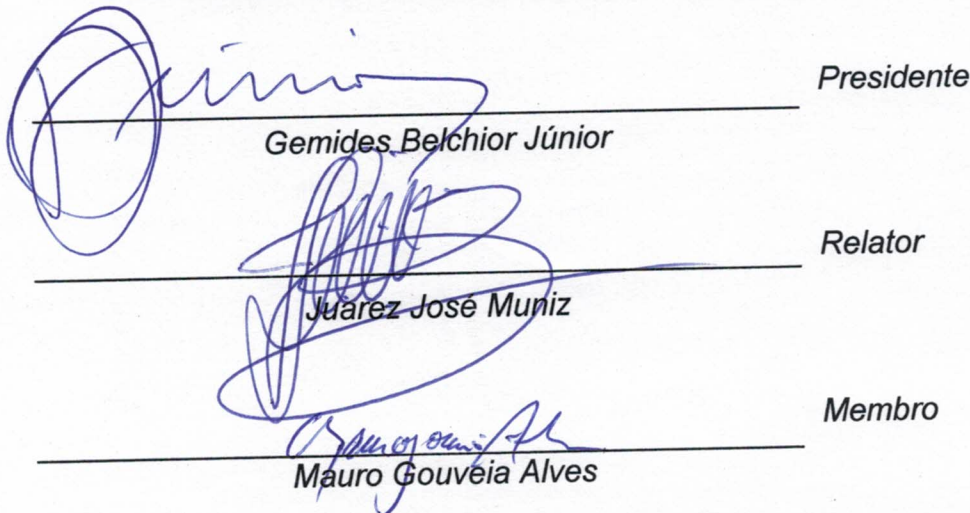 Presidente
Gemides Belchior Júnior
Relator
Juarez José Muniz
Membro
Mauro Gouveia Alves